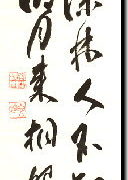 深林人不知
明月来相照